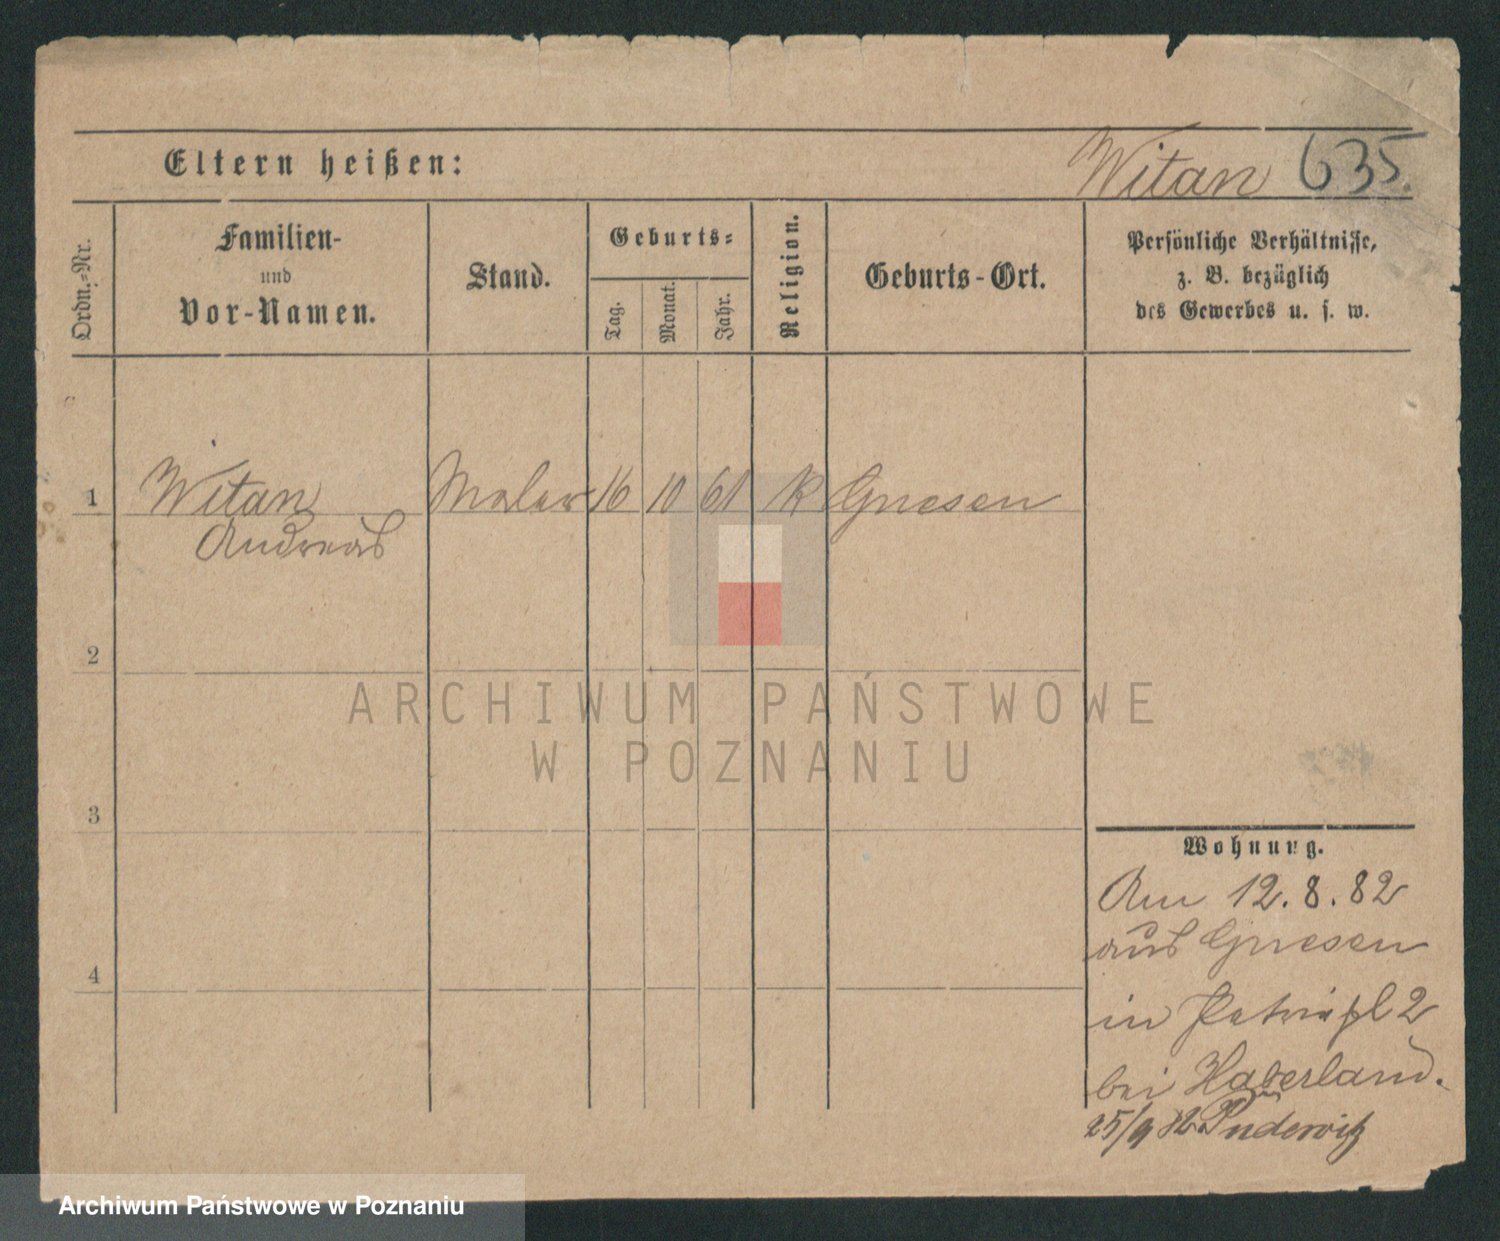 Eltern heißen:
Witan 635.
Ordn.-Nr.
Familien-
und
Vor-Namen.
Stand.
Geburts-
Tag.
Monat.
Jahr.
Religion.
Geburts-Ort.
Persönliche Verhältnisse,
z. B. bezüglich
des Gewerbes u. s. w.
1 Witan Maler 16 10 61 k Gnesen
Andreas
2
3
4
ARCHIWUM PAŃSTWOWE
W POZNANIU
Wohnung.
Am 12.8.82
aus Gnesen
in Petripl 2
bei Haberland.
25/9 82 Pudewitz
Archiwum Państwowe w Poznaniu